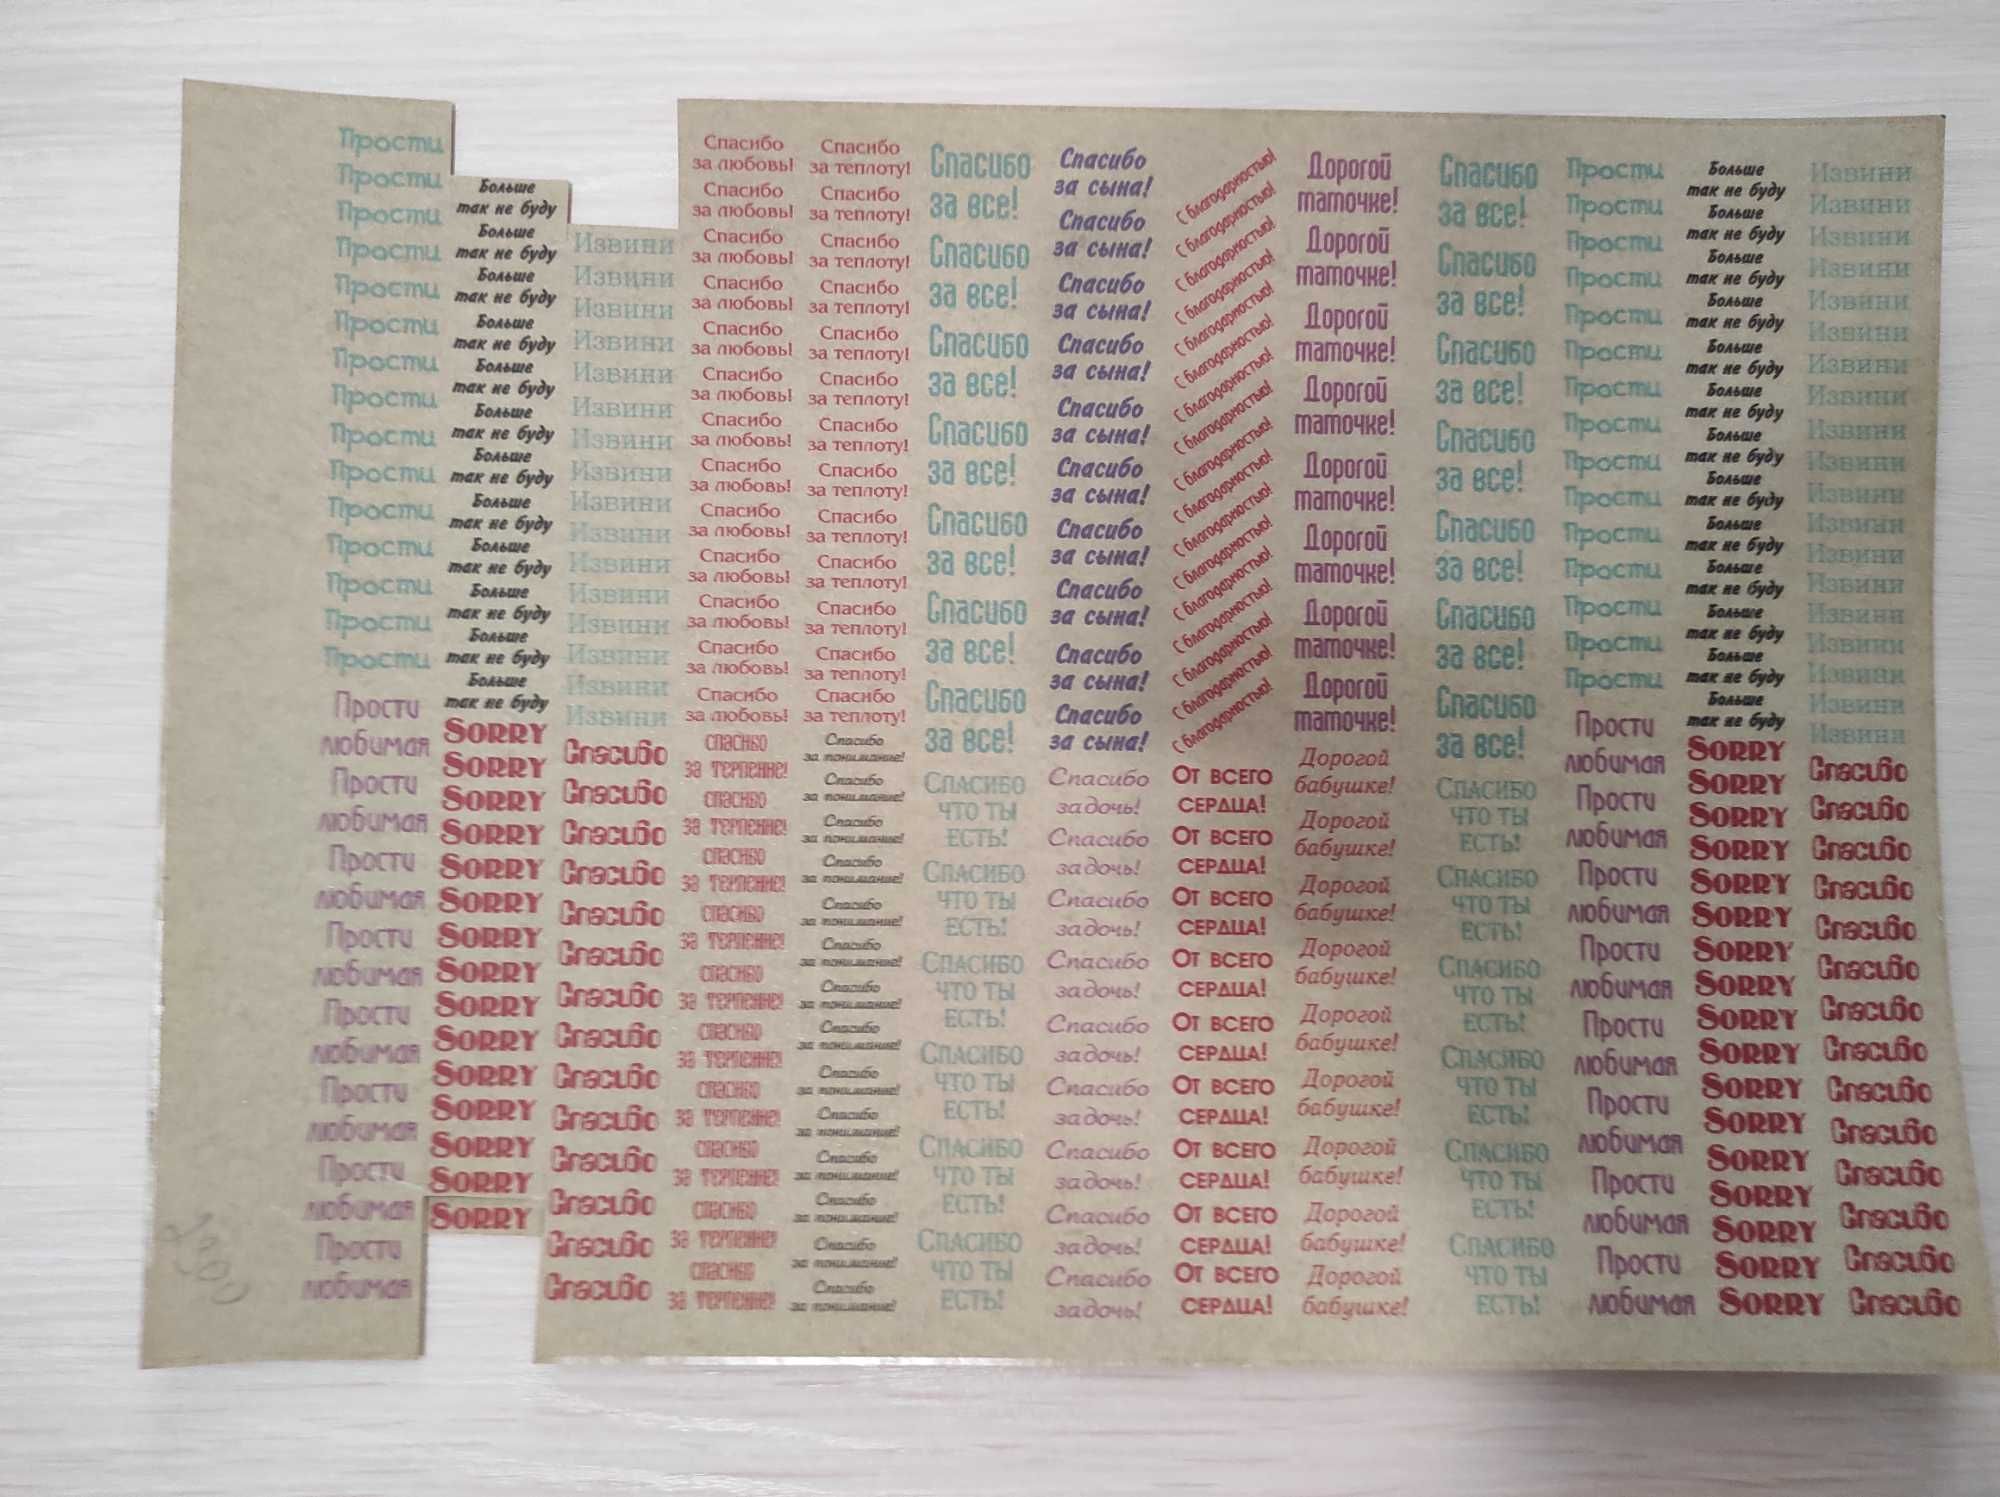 Прости
Прости
Прости
Прости
Прости
Прости
Прости
Прости
Прости
Прости
Прости
Прости
Прости
Прости
Прости
Прости
любимая
Прости
любимая
Прости
любимая
Прости
любимая
Прости
любимая
Прости
любимая
Прости
любимая
Прости
любимая
Больше
так не буду
Больше
так не буду
Больше
так не буду
Больше
так не буду
Больше
так не буду
Больше
так не буду
Больше
так не буду
Больше
так не буду
Больше
так не буду
Больше
так не буду
Больше
так не буду
Больше
так не буду
SORRY
SORRY
SORRY
SORRY
SORRY
SORRY
SORRY
SORRY
SORRY
SORRY
SORRY
SORRY
SORRY
SORRY
SORRY
Извини
Извини
Извини
Извини
Извини
Извини
Извини
Извини
Извини
Извини
Извини
Извини
Извини
Извини
Извини
Извини
Спасибо
Спасибо
Спасибо
Спасибо
Спасибо
Спасибо
Спасибо
Спасибо
Спасибо
Спасибо
Спасибо
Спасибо
Спасибо
Спасибо
Спасибо
за любовь!
Спасибо
за любовь!
Спасибо
за любовь!
Спасибо
за любовь!
Спасибо
за любовь!
Спасибо
за любовь!
Спасибо
за любовь!
Спасибо
за любовь!
Спасибо
за любовь!
Спасибо
за любовь!
Спасибо
за любовь!
Спасибо
за любовь!
Спасибо
за любовь!
спасибо
за терпение!
спасибо
за терпение!
спасибо
за терпение!
спасибо
за терпение!
спасибо
за терпение!
спасибо
за терпение!
спасибо
за терпение!
спасибо
за терпение!
спасибо
за терпение!
спасибо
за терпение!
Спасибо
за теплоту!
Спасибо
за теплоту!
Спасибо
за теплоту!
Спасибо
за теплоту!
Спасибо
за теплоту!
Спасибо
за теплоту!
Спасибо
за теплоту!
Спасибо
за теплоту!
Спасибо
за теплоту!
Спасибо
за теплоту!
Спасибо
за теплоту!
Спасибо
за теплоту!
Спасибо
за теплоту!
Спасибо
за понимание!
Спасибо
за понимание!
Спасибо
за понимание!
Спасибо
за понимание!
Спасибо
за понимание!
Спасибо
за понимание!
Спасибо
за понимание!
Спасибо
за понимание!
Спасибо
за понимание!
Спасибо
за понимание!
Спасибо
за понимание!
Спасибо
за понимание!
Спасибо
за понимание!
Спасибо
за понимание!
Спасибо
за все!
Спасибо
за все!
Спасибо
за все!
Спасибо
за все!
Спасибо
за все!
Спасибо
за все!
Спасибо
за все!
СПАСИБО
ЧТО ТЫ
ЕСТЬ!
СПАСИБО
ЧТО ТЫ
ЕСТЬ!
СПАСИБО
ЧТО ТЫ
ЕСТЬ!
СПАСИБО
ЧТО ТЫ
ЕСТЬ!
СПАСИБО
ЧТО ТЫ
ЕСТЬ!
СПАСИБО
ЧТО ТЫ
ЕСТЬ!
Спасибо
за сына!
Спасибо
за сына!
Спасибо
за сына!
Спасибо
за сына!
Спасибо
за сына!
Спасибо
за сына!
Спасибо
за сына!
Спасибо
за сына!
Спасибо
за сына!
Спасибо
за сына!
Спасибо
за дочь!
Спасибо
за дочь!
Спасибо
за дочь!
Спасибо
за дочь!
Спасибо
за дочь!
Спасибо
за дочь!
Спасибо
за дочь!
Спасибо
за дочь!
Спасибо
за дочь!
С благодарностью!
С благодарностью!
С благодарностью!
С благодарностью!
С благодарностью!
С благодарностью!
С благодарностью!
С благодарностью!
С благодарностью!
С благодарностью!
С благодарностью!
С благодарностью!
С благодарностью!
С благодарностью!
С благодарностью!
С благодарностью!
С благодарностью!
ОТ ВСЕГО
СЕРДЦА!
ОТ ВСЕГО
СЕРДЦА!
ОТ ВСЕГО
СЕРДЦА!
ОТ ВСЕГО
СЕРДЦА!
ОТ ВСЕГО
СЕРДЦА!
ОТ ВСЕГО
СЕРДЦА!
ОТ ВСЕГО
СЕРДЦА!
ОТ ВСЕГО
СЕРДЦА!
ОТ ВСЕГО
СЕРДЦА!
Дорогой
таточке!
Дорогой
таточке!
Дорогой
таточке!
Дорогой
таточке!
Дорогой
таточке!
Дорогой
таточке!
Дорогой
таточке!
Дорогой
таточке!
Дорогой
бабушке!
Дорогой
бабушке!
Дорогой
бабушке!
Дорогой
бабушке!
Дорогой
бабушке!
Дорогой
бабушке!
Дорогой
бабушке!
Дорогой
бабушке!
Дорогой
бабушке!
Спасибо
за все!
Спасибо
за все!
Спасибо
за все!
Спасибо
за все!
Спасибо
за все!
Спасибо
за все!
Спасибо
за все!
СПАСИБО
ЧТО ТЫ
ЕСТЬ!
СПАСИБО
ЧТО ТЫ
ЕСТЬ!
СПАСИБО
ЧТО ТЫ
ЕСТЬ!
СПАСИБО
ЧТО ТЫ
ЕСТЬ!
СПАСИБО
ЧТО ТЫ
ЕСТЬ!
СПАСИБО
ЧТО ТЫ
ЕСТЬ!
Прости
Прости
Прости
Прости
Прости
Прости
Прости
Прости
Прости
Прости
Прости
Прости
Прости
Прости
Прости
Прости
любимая
Прости
любимая
Прости
любимая
Прости
любимая
Прости
любимая
Прости
любимая
Прости
любимая
Прости
любимая
Больше
так не буду
Больше
так не буду
Больше
так не буду
Больше
так не буду
Больше
так не буду
Больше
так не буду
Больше
так не буду
Больше
так не буду
Больше
так не буду
Больше
так не буду
Больше
так не буду
Больше
так не буду
Больше
так не буду
SORRY
SORRY
SORRY
SORRY
SORRY
SORRY
SORRY
SORRY
SORRY
SORRY
SORRY
SORRY
SORRY
SORRY
SORRY
SORRY
SORRY
Извини
Извини
Извини
Извини
Извини
Извини
Извини
Извини
Извини
Извини
Извини
Извини
Извини
Извини
Извини
Извини
Извини
Извини
Извини
Спасибо
Спасибо
Спасибо
Спасибо
Спасибо
Спасибо
Спасибо
Спасибо
Спасибо
Спасибо
Спасибо
Спасибо
Спасибо
Спасибо